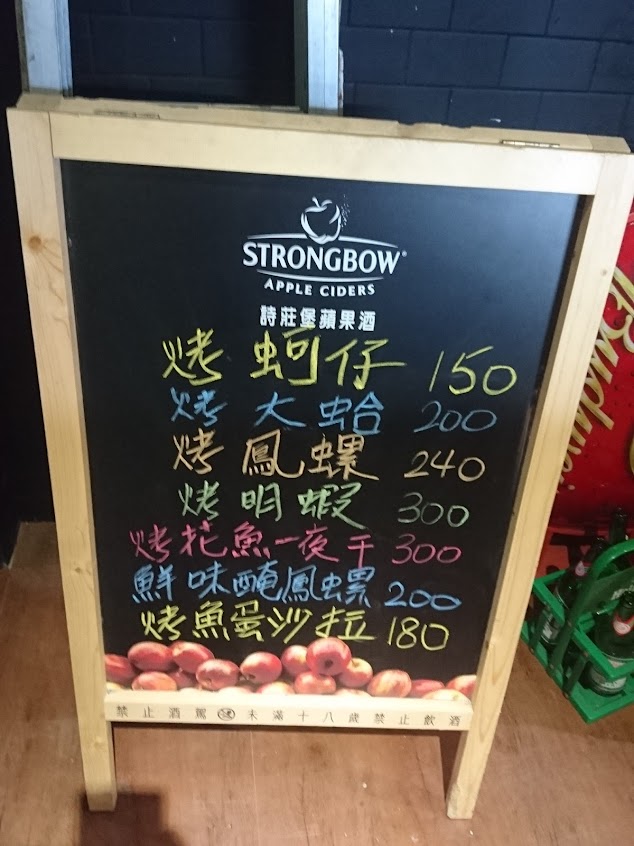 STRONGBOW®
APPLE CIDERS
詩莊堡蘋果酒
烤蚵仔 150
烤大蛤 200
烤鳳螺 240
烤明蝦 300
烤花魚一夜干 300
鮮味醃鳳螺 200
烤魚蛋沙拉 180
禁止酒駕 未滿十八歲禁止飲酒